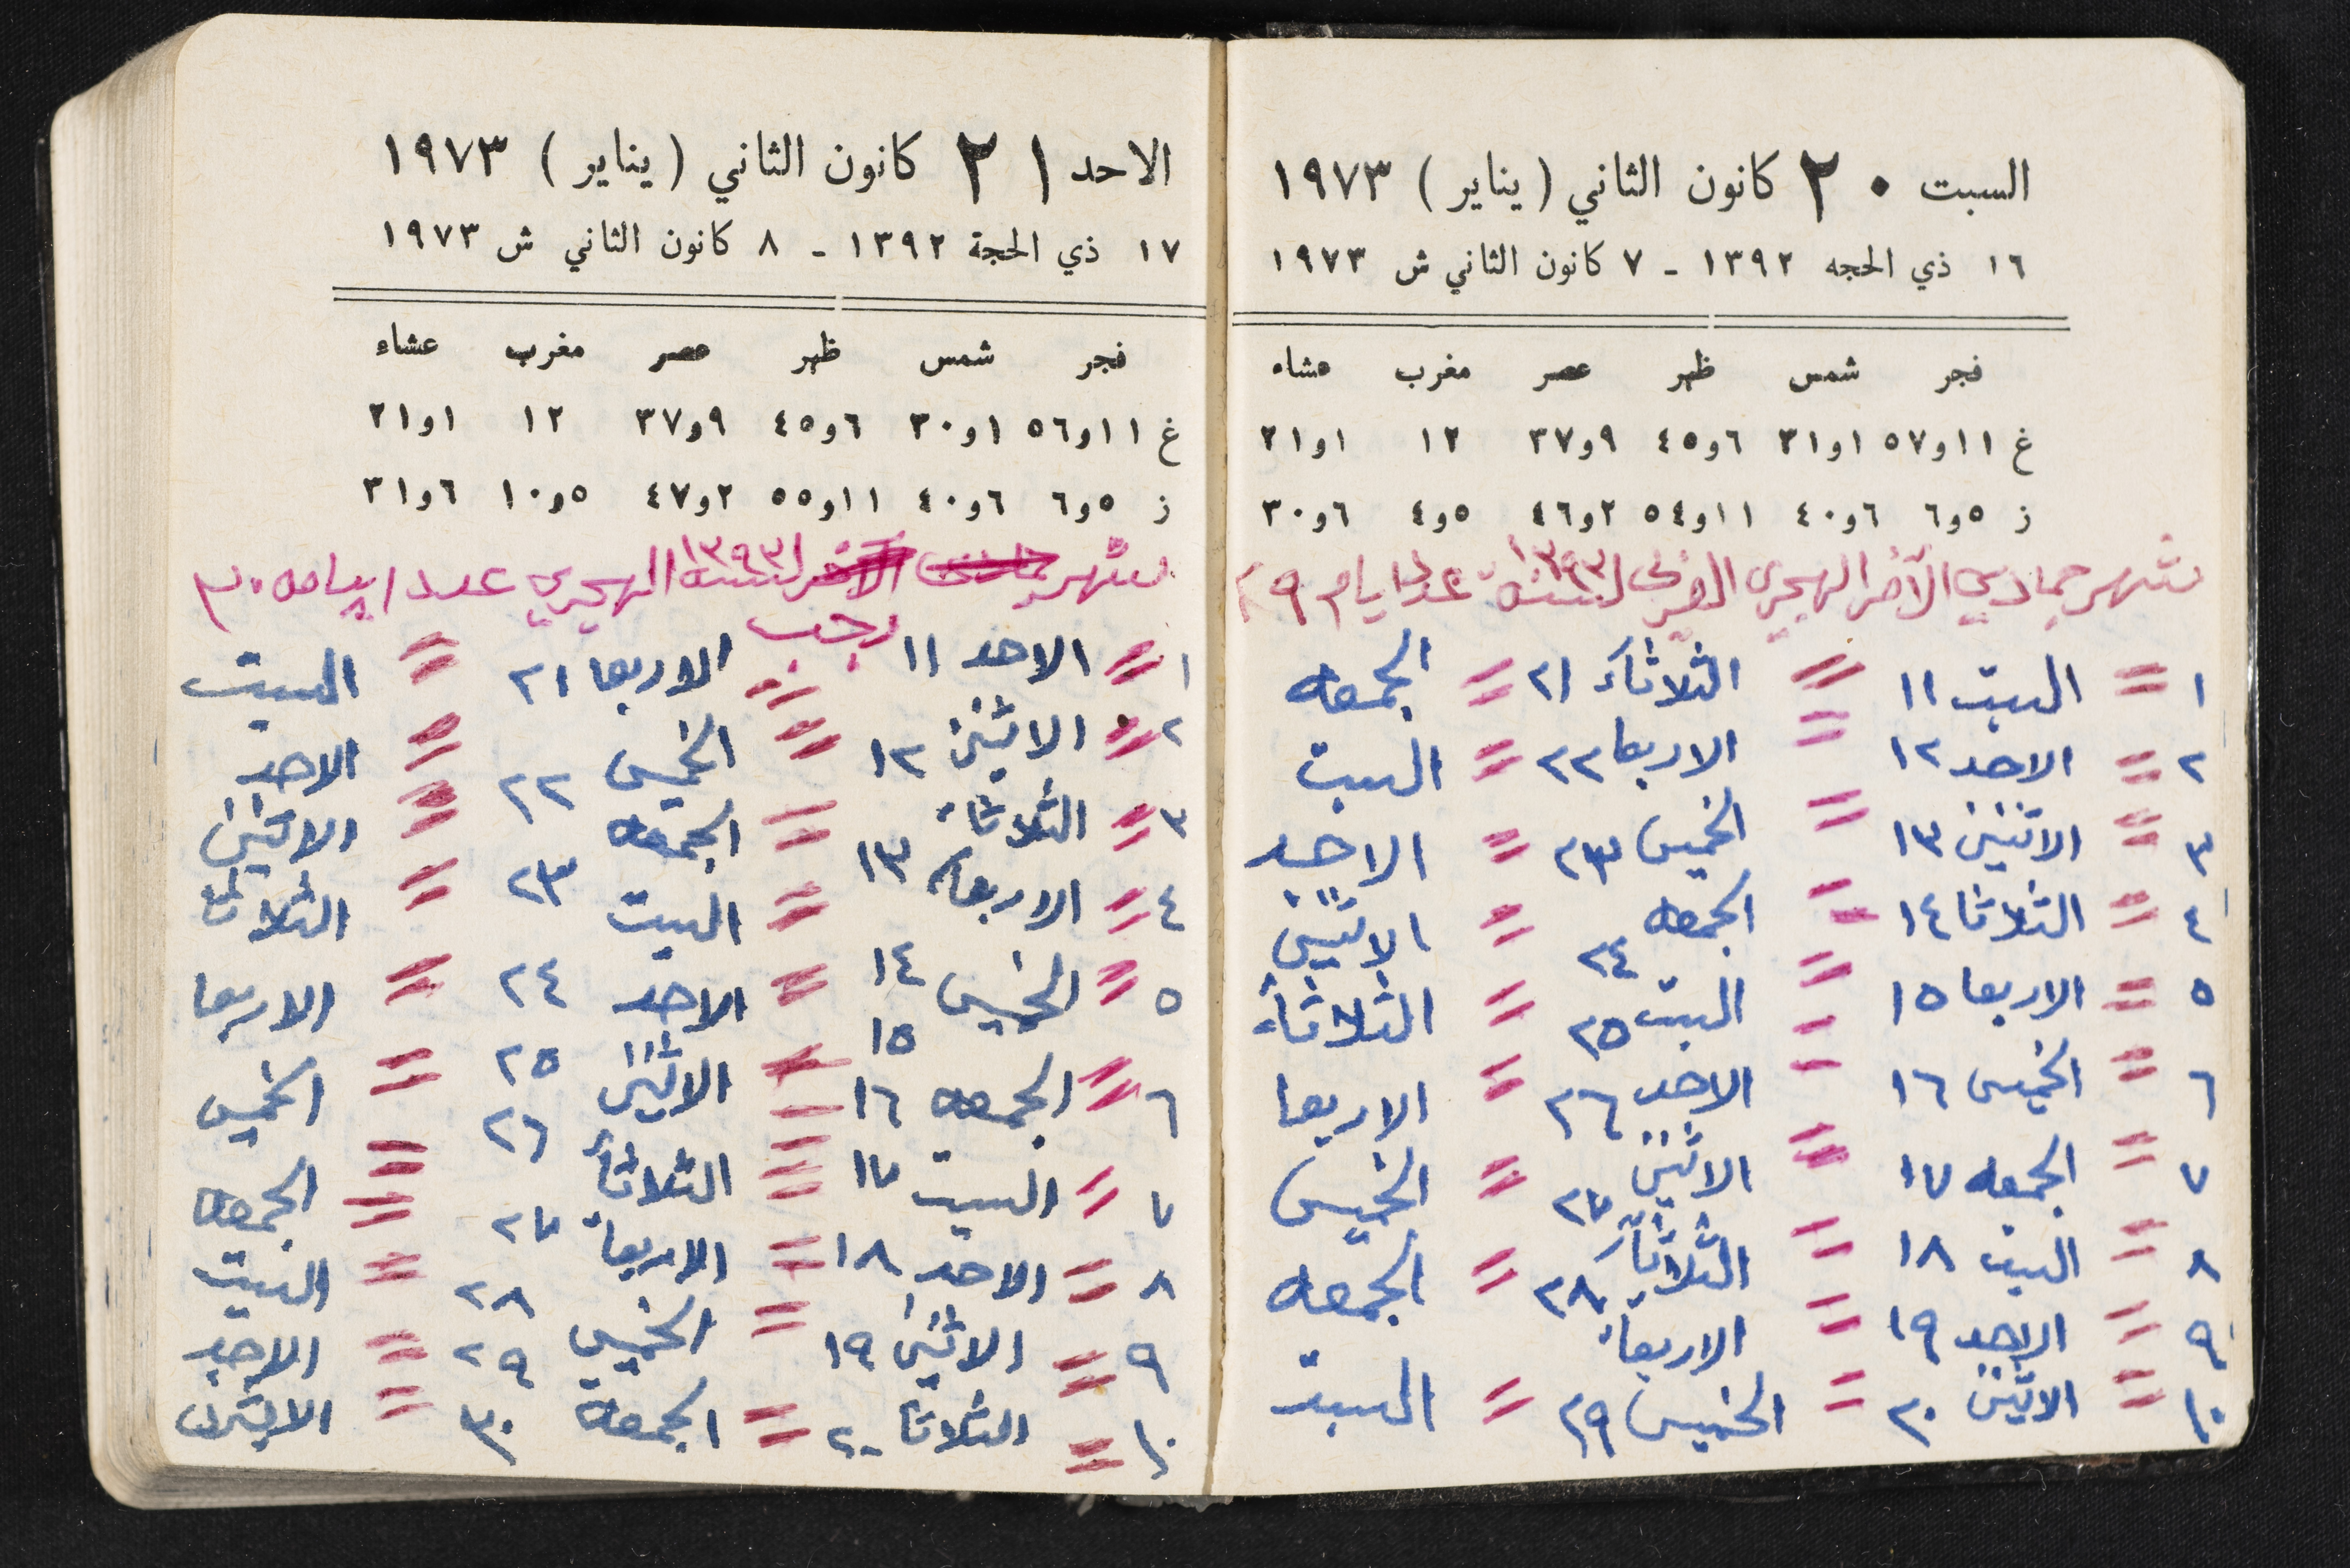 السبت ٢٠ كانون الثاني (يناير) ١٩٧٣
١٦ ذي الحجه ١٣٩٢ - ٧ كانون الثاني ش ١٩٧٣
فجر شمس ظهر عصر مغرب عشاء
غ ١١و٥٧ ١و٣١ ٦و٤٥ ٩و٣٧ ١٢ ١و٢١
ز ٥و٦ ٦و٤٠ ١١و٥٤ ٢و٤٦ ٥و٤ ٦و٣٠
شهر جمادي الآخر الهجري لسنة ١٣٩٣ عدد ايام ٢٩
١ = السبت ١١ = الثلاثاء ٢١ = الجمعه
٢ = الاحد ١٢ = الاربعا ٢٢ = السبت
٣ = الاثنين ١٣ = الخميس ٢٣ = الاحد
٤ = الثلاثا ١٤ = الجمعه ٢٤ = الاثنين
٥ = الاربعا ١٥ = السبت ٢٥ = الثلاثاء
٦ = الخميس ١٦ = الاحد ٢٦ = الاربعا
٧ = الجمعه ١٧ = الاثنين ٢٧ = الخميس
٨ = السبت ١٨ = الثلاثاء ٢٨ = الجمعه
٩ = الاحد ١٩ = الاربعاء
١٠ = الاثنين ٢٠ = الخميس ٢٩ = السبت
الاحد ٢١ كانون الثاني (يناير) ١٩٧٣
١٧ ذي الحجة ١٣٩٢ - ٨ كانون الثاني ش ١٩٧٣
فجر شمس ظهر عصر مغرب عشاء
غ ١١و٥٦ ١و٣٠ ٦و٤٥ ٩و٣٧ ١٢ ١و٢١
ز ٥و٦ ٦و٤٠ ١١و٥٥ ٢و٤٧ ٥و١٠ ٦و٣١
شهر رجب لسنة ١٣٩٣ الهجري عدد ايامه ٣٠
١ = الاحد ١١ = الاربعا ٢١ = السبت
٢ = الاثنين ١٢ = الخميس ٢٢ = الاحد
٣ = الثلاثاء ١٣ = الجمعه ٢٣ = الاثنين
٤ = الاربعاء ١٤ = السبت ٢٤ = الثلاثاء
٥ = الخميس ١٥ = الاحد ٢٥ = الاربعا
٦ = الجمعه ١٦ = الاثنين ٢٦ = الخميس
٧ = السبت ١٧ = الثلاثاء ٢٧ = الجمعه
٨ = الاحد ١٨ = الاربعاء ٢٨ = السبت
٩ = الاثنين ١٩ = الخميس ٢٩ = الاحد
١٠ = الثلاثا ٢٠ = الجمعة ٣٠ = الاثنين